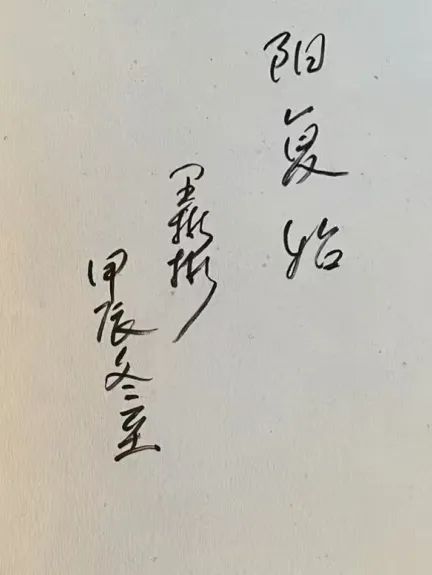 阳复始
王彬彬
甲辰冬至